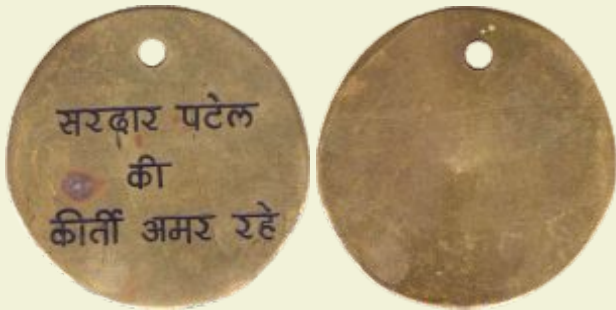 सरदार पटेल
की
कीर्ती अमर रहे